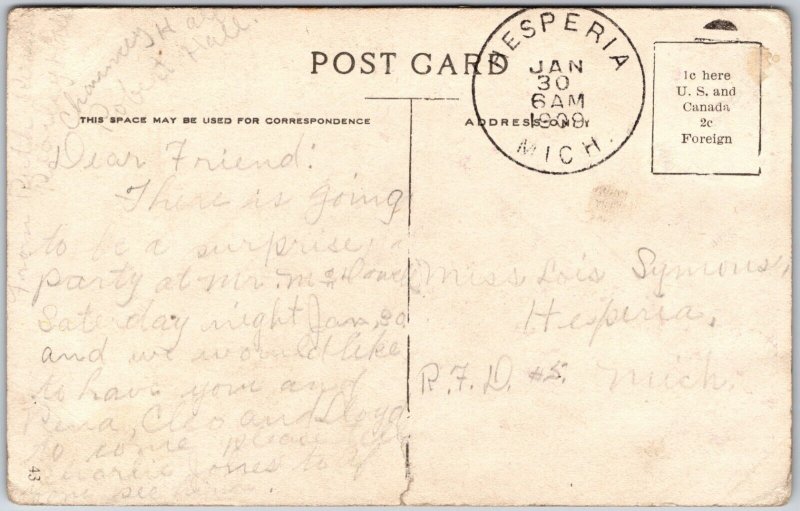 Chauncey Hall
Robert Hall.
POST CARD
THIS SPACE MAY BE USED FOR CORRESPONDENCE
ADDRESS ONLY
HESPERIA
JAN
30
6 AM
1909
MICH.
1c here
U. S. and
Canada
2c
Foreign
Dear Friend:
There is going
to be a surprise
party at Mr.
Saterday night Jan. 30
and we would like
to have you and
Rena, Cleo and Lloyd
to come please
Jones to if
you see
Miss Lois Symons,
Hesperia,
R. F. D. #5. Mich.
43
From